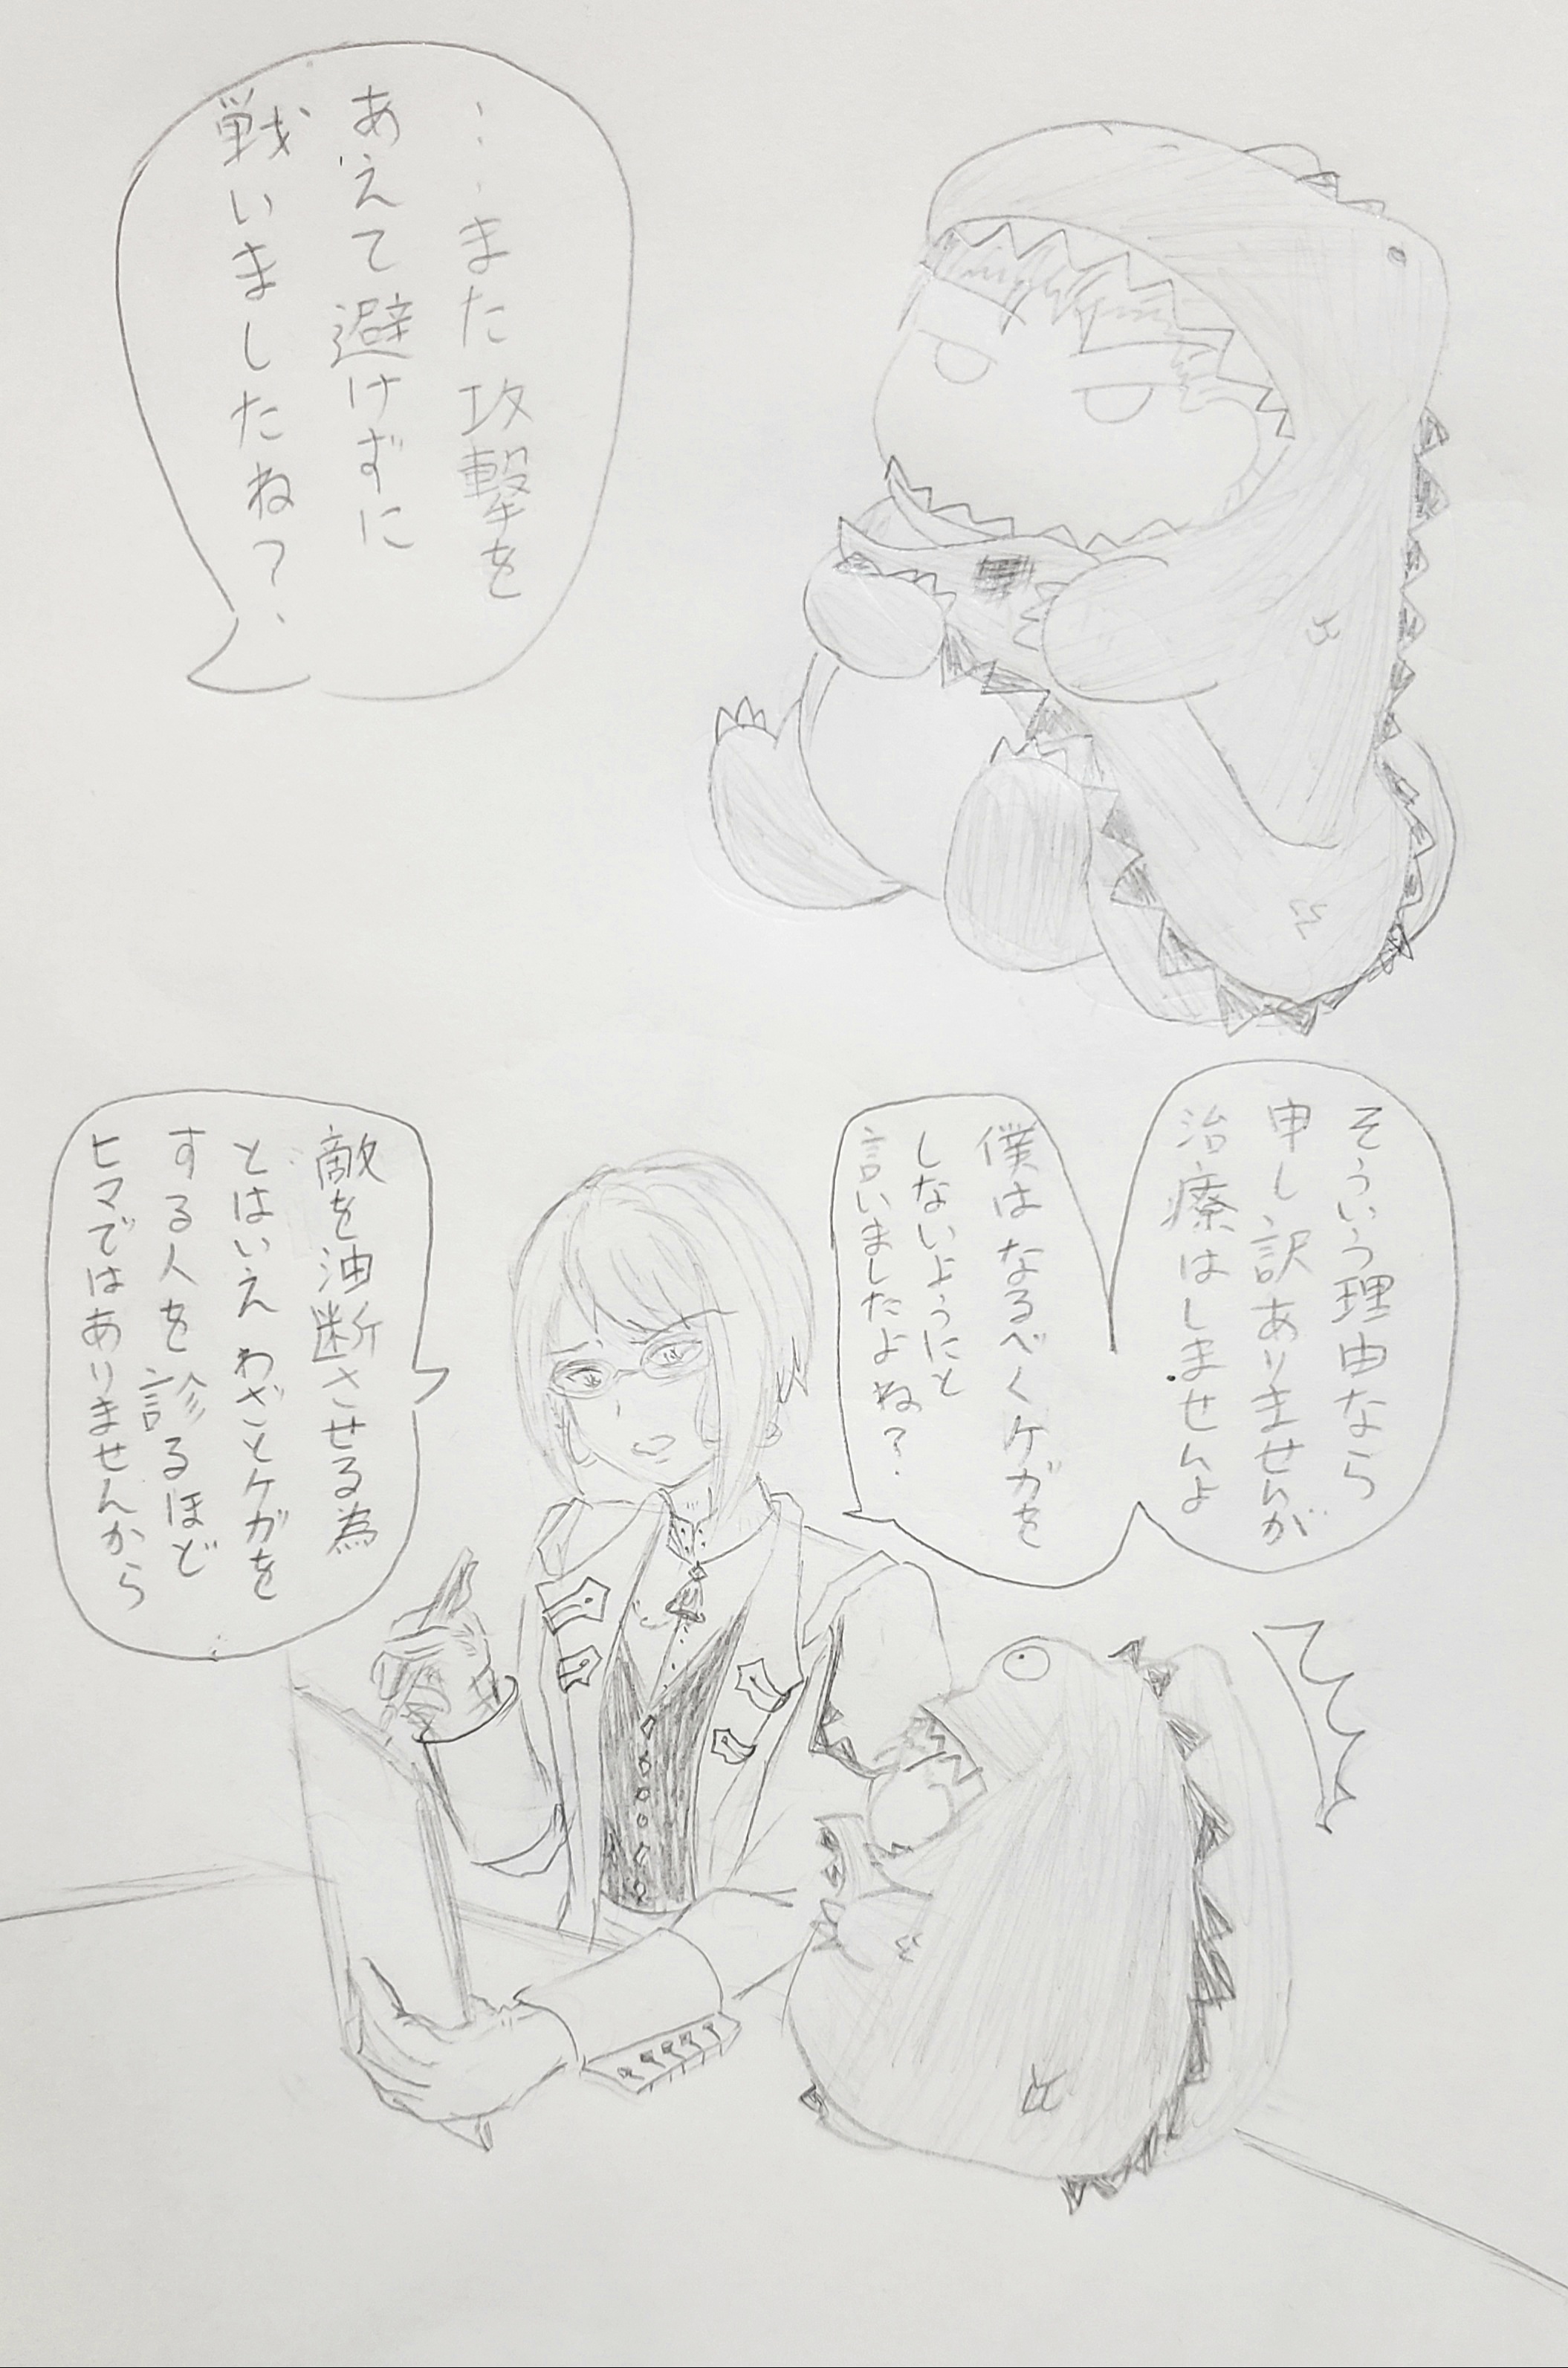 …また攻撃を
あえて避けずに
戦いましたね？
そういう理由なら
申し訳ありませんが
治療はしませんよ
僕はなるべくケガを
しないようにと
言いましたよね？
敵を油断させる為
とはいえわざとケガを
する人を診るほど
ヒマではありませんから